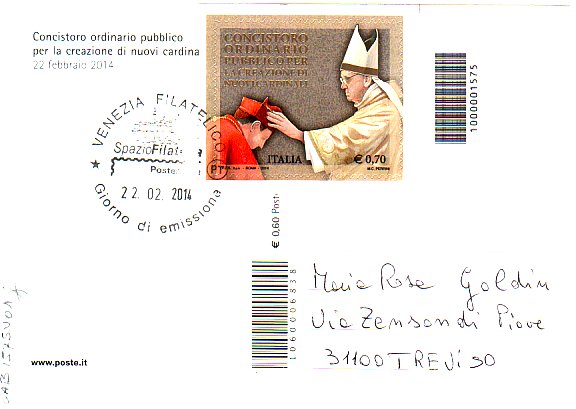 Concistoro ordinario pubblico
per la creazione di nuovi cardina
22 febbraio 2014
CONCISTORO
ORDINARIO
PUBBLICO PER
LA CREAZIONE DI
NUOVI CARDINALI
ITALIA
€ 0,70
M.C. PERRINI
1000001575
★ VENEZIA FILATELICO
SpazioFilat
Poste
22.02.2014
Giorno di emissione
€ 0,60 Poste
1060006838
Maria Rosa Goldin
Via Zenson di Piave
31100 TREVISO
www.poste.it